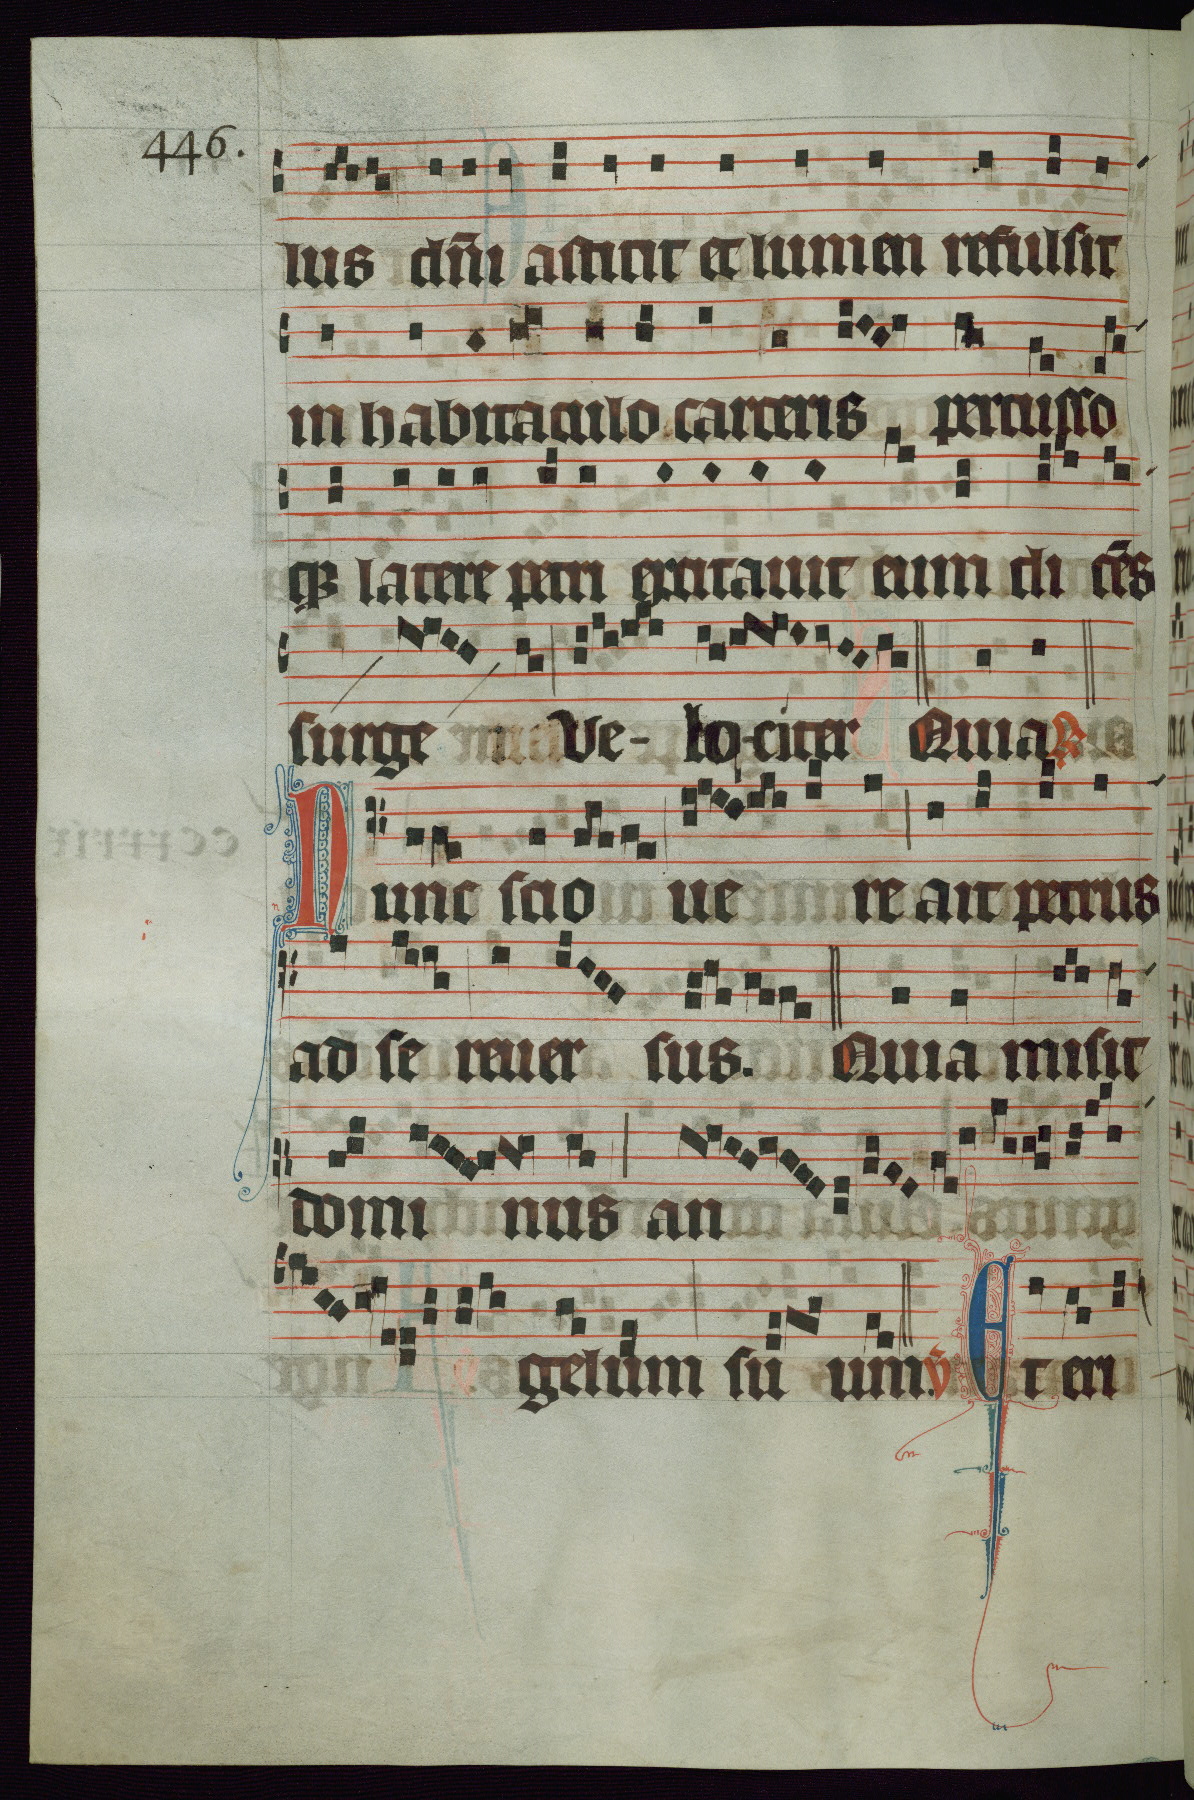 446.
lus dñi astitit et lumen refulsit
in habitaculo carceris, percusso
q3 latere petri excitauit eum di cēs
surge Ve- lo-citer Quia R
Nunc scio ue re ait petrus
ad se reuer sus. Quia misit
domi nus an
gelum su um. V Et eri